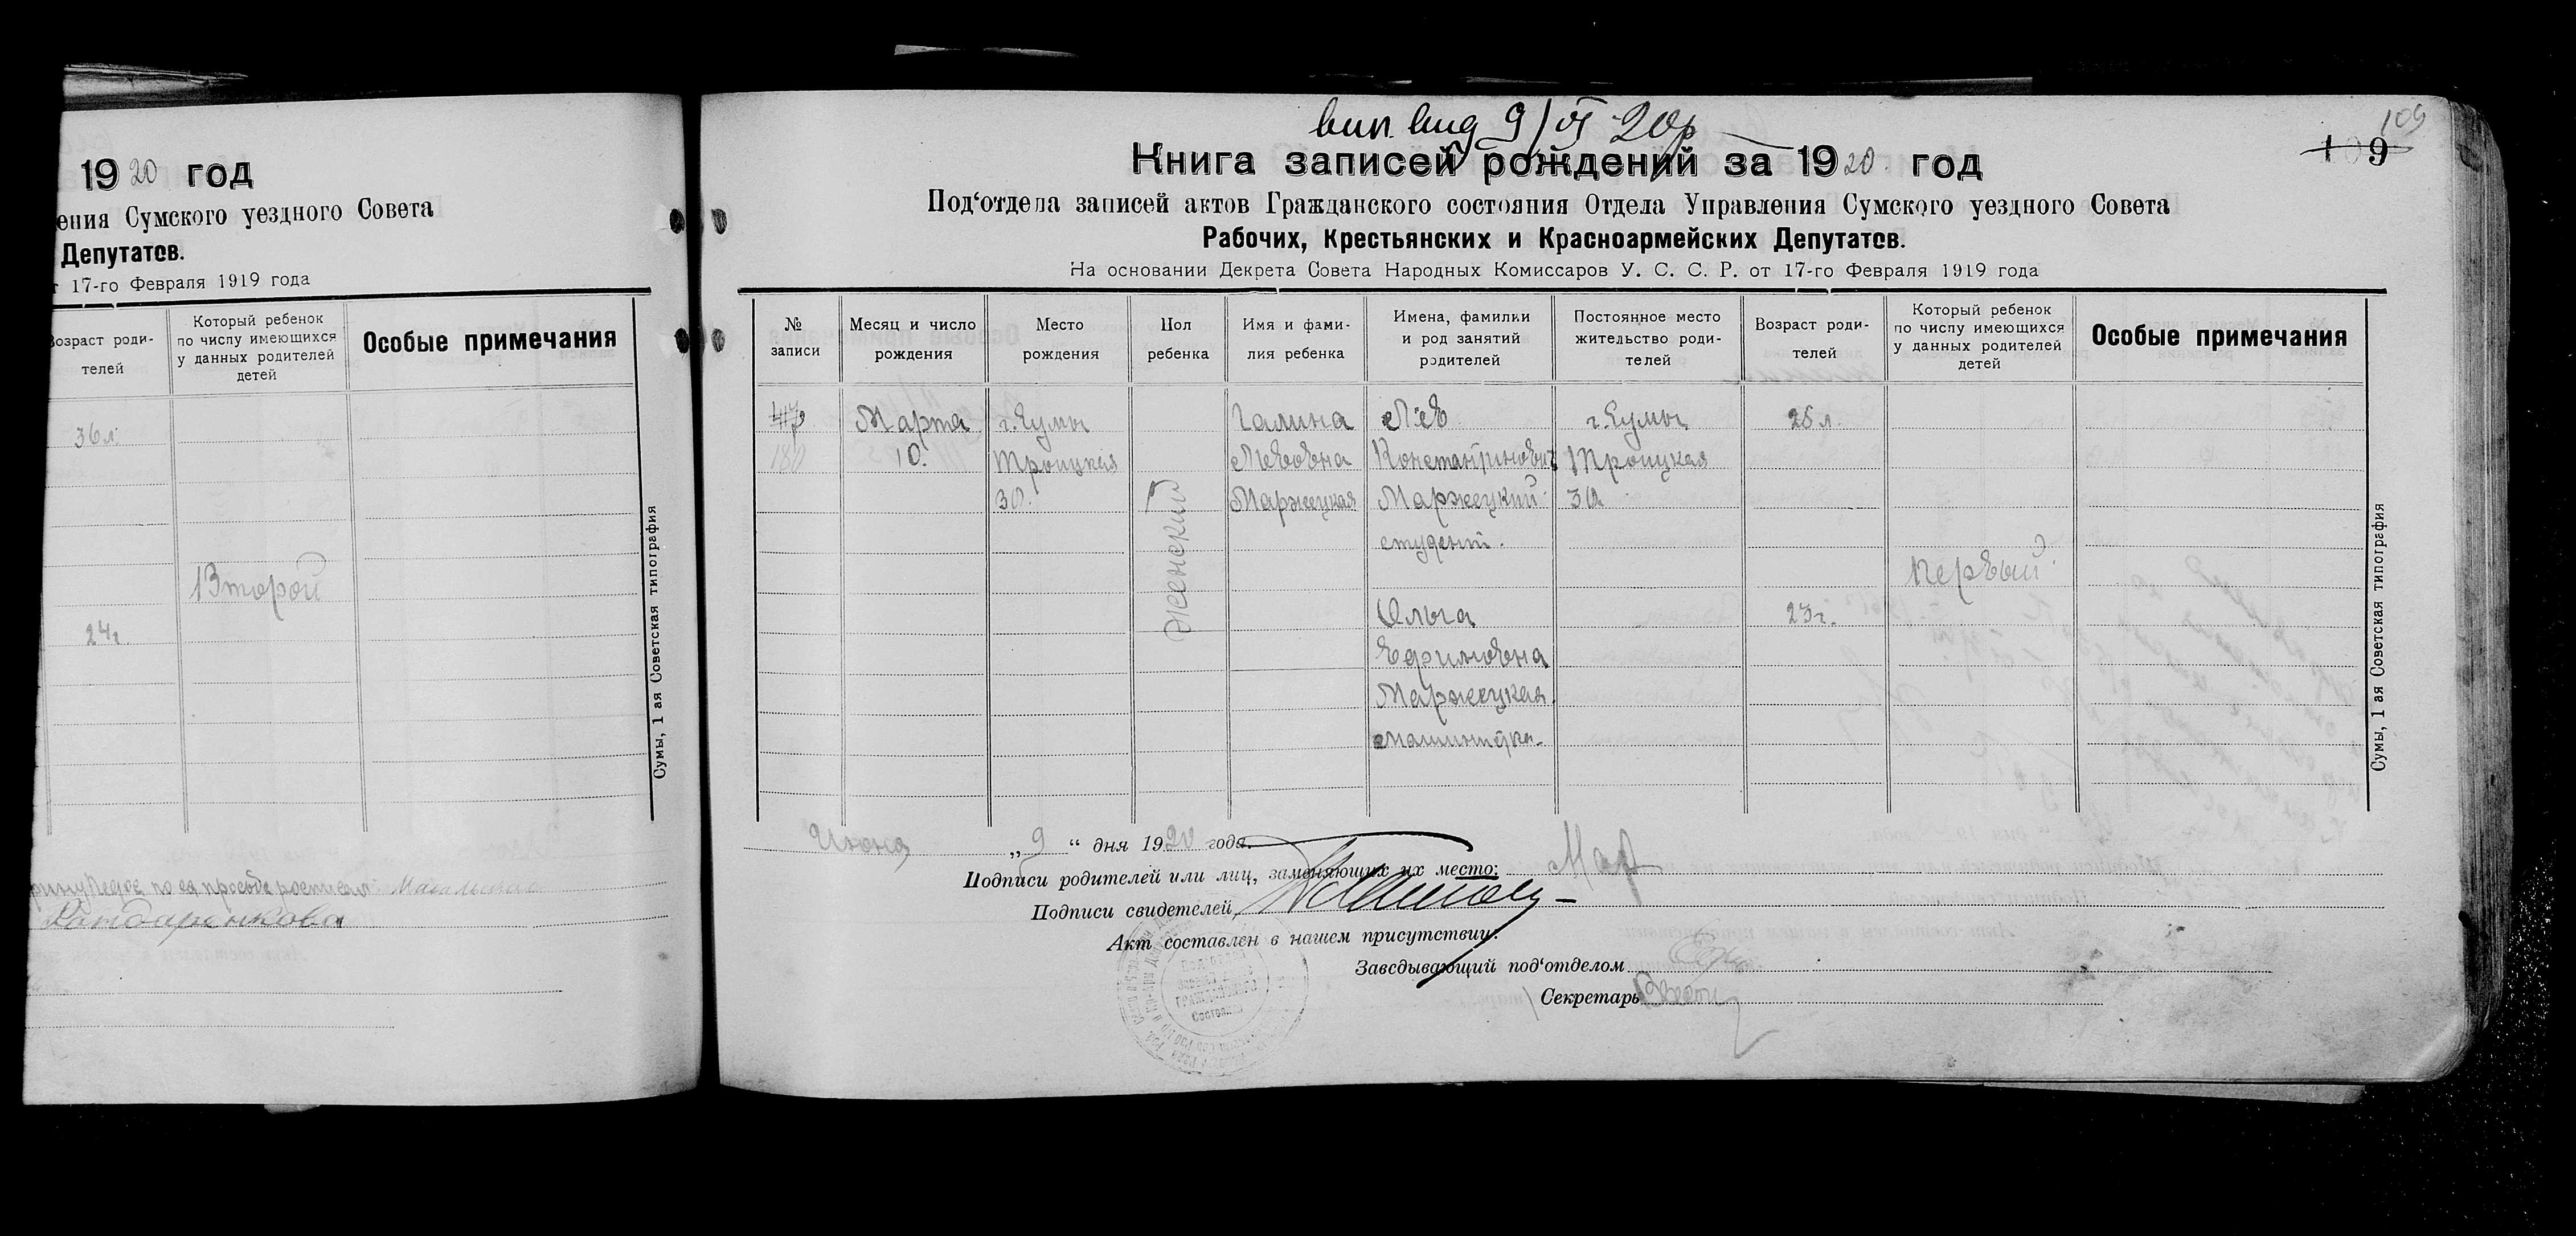 1920 год
ения Сумского уездного Совета
Депутатов.
т 17-го Февраля 1919 года
Возраст роди-
телей
Который ребенок
по числу имеющихся
у данных родителей
детей
Особые примечания
36 л.
Второй
24 г.
по ея просьбе
Сумы, 1 ая Советская типография
вип. вид 9/VI 20р
109
109
Книга записей рождений за 1920 год
Под‘отдела записей актов Гражданского состояния Отдела Управления Сумского уездного Совета
Рабочих, Крестьянских и Красноармейских Депутатов.
На основании Декрета Совета Народных Комиссаров У. С. С. Р. от 17-го Февраля 1919 года
№
записи
Месяц и число
рождения
Место
рождения
Пол
ребенка
Имя и фами-
лия ребенка
Имена, фамилии
и род занятий
родителей
Постоянное место
жительство роди-
телей
Возраст роди-
телей
Который ребенок
по числу имеющихся
у данных родителей
детей
Особые примечания
180
Марта
10.
г. Сумы
Троицкая
30.
Женский
Галина
Львовна
Маржецкая
Лев
Константинович
Маржецкий
студент.
Ольга
Ефимовна
Маржецкая.
машинистка
г. Сумы
Троицкая
30.
25 л.
23 г.
Первый
Сумы, 1 ая Советская типография
Июня „9“ дня 1920 года.
Подписи родителей или лиц, заменяющих их место: Мар
Подписи свидетелей
Акт составлен в нашем присутствии:
Заведывающий под‘отделом
Секретарь
Гражданского
Состояния